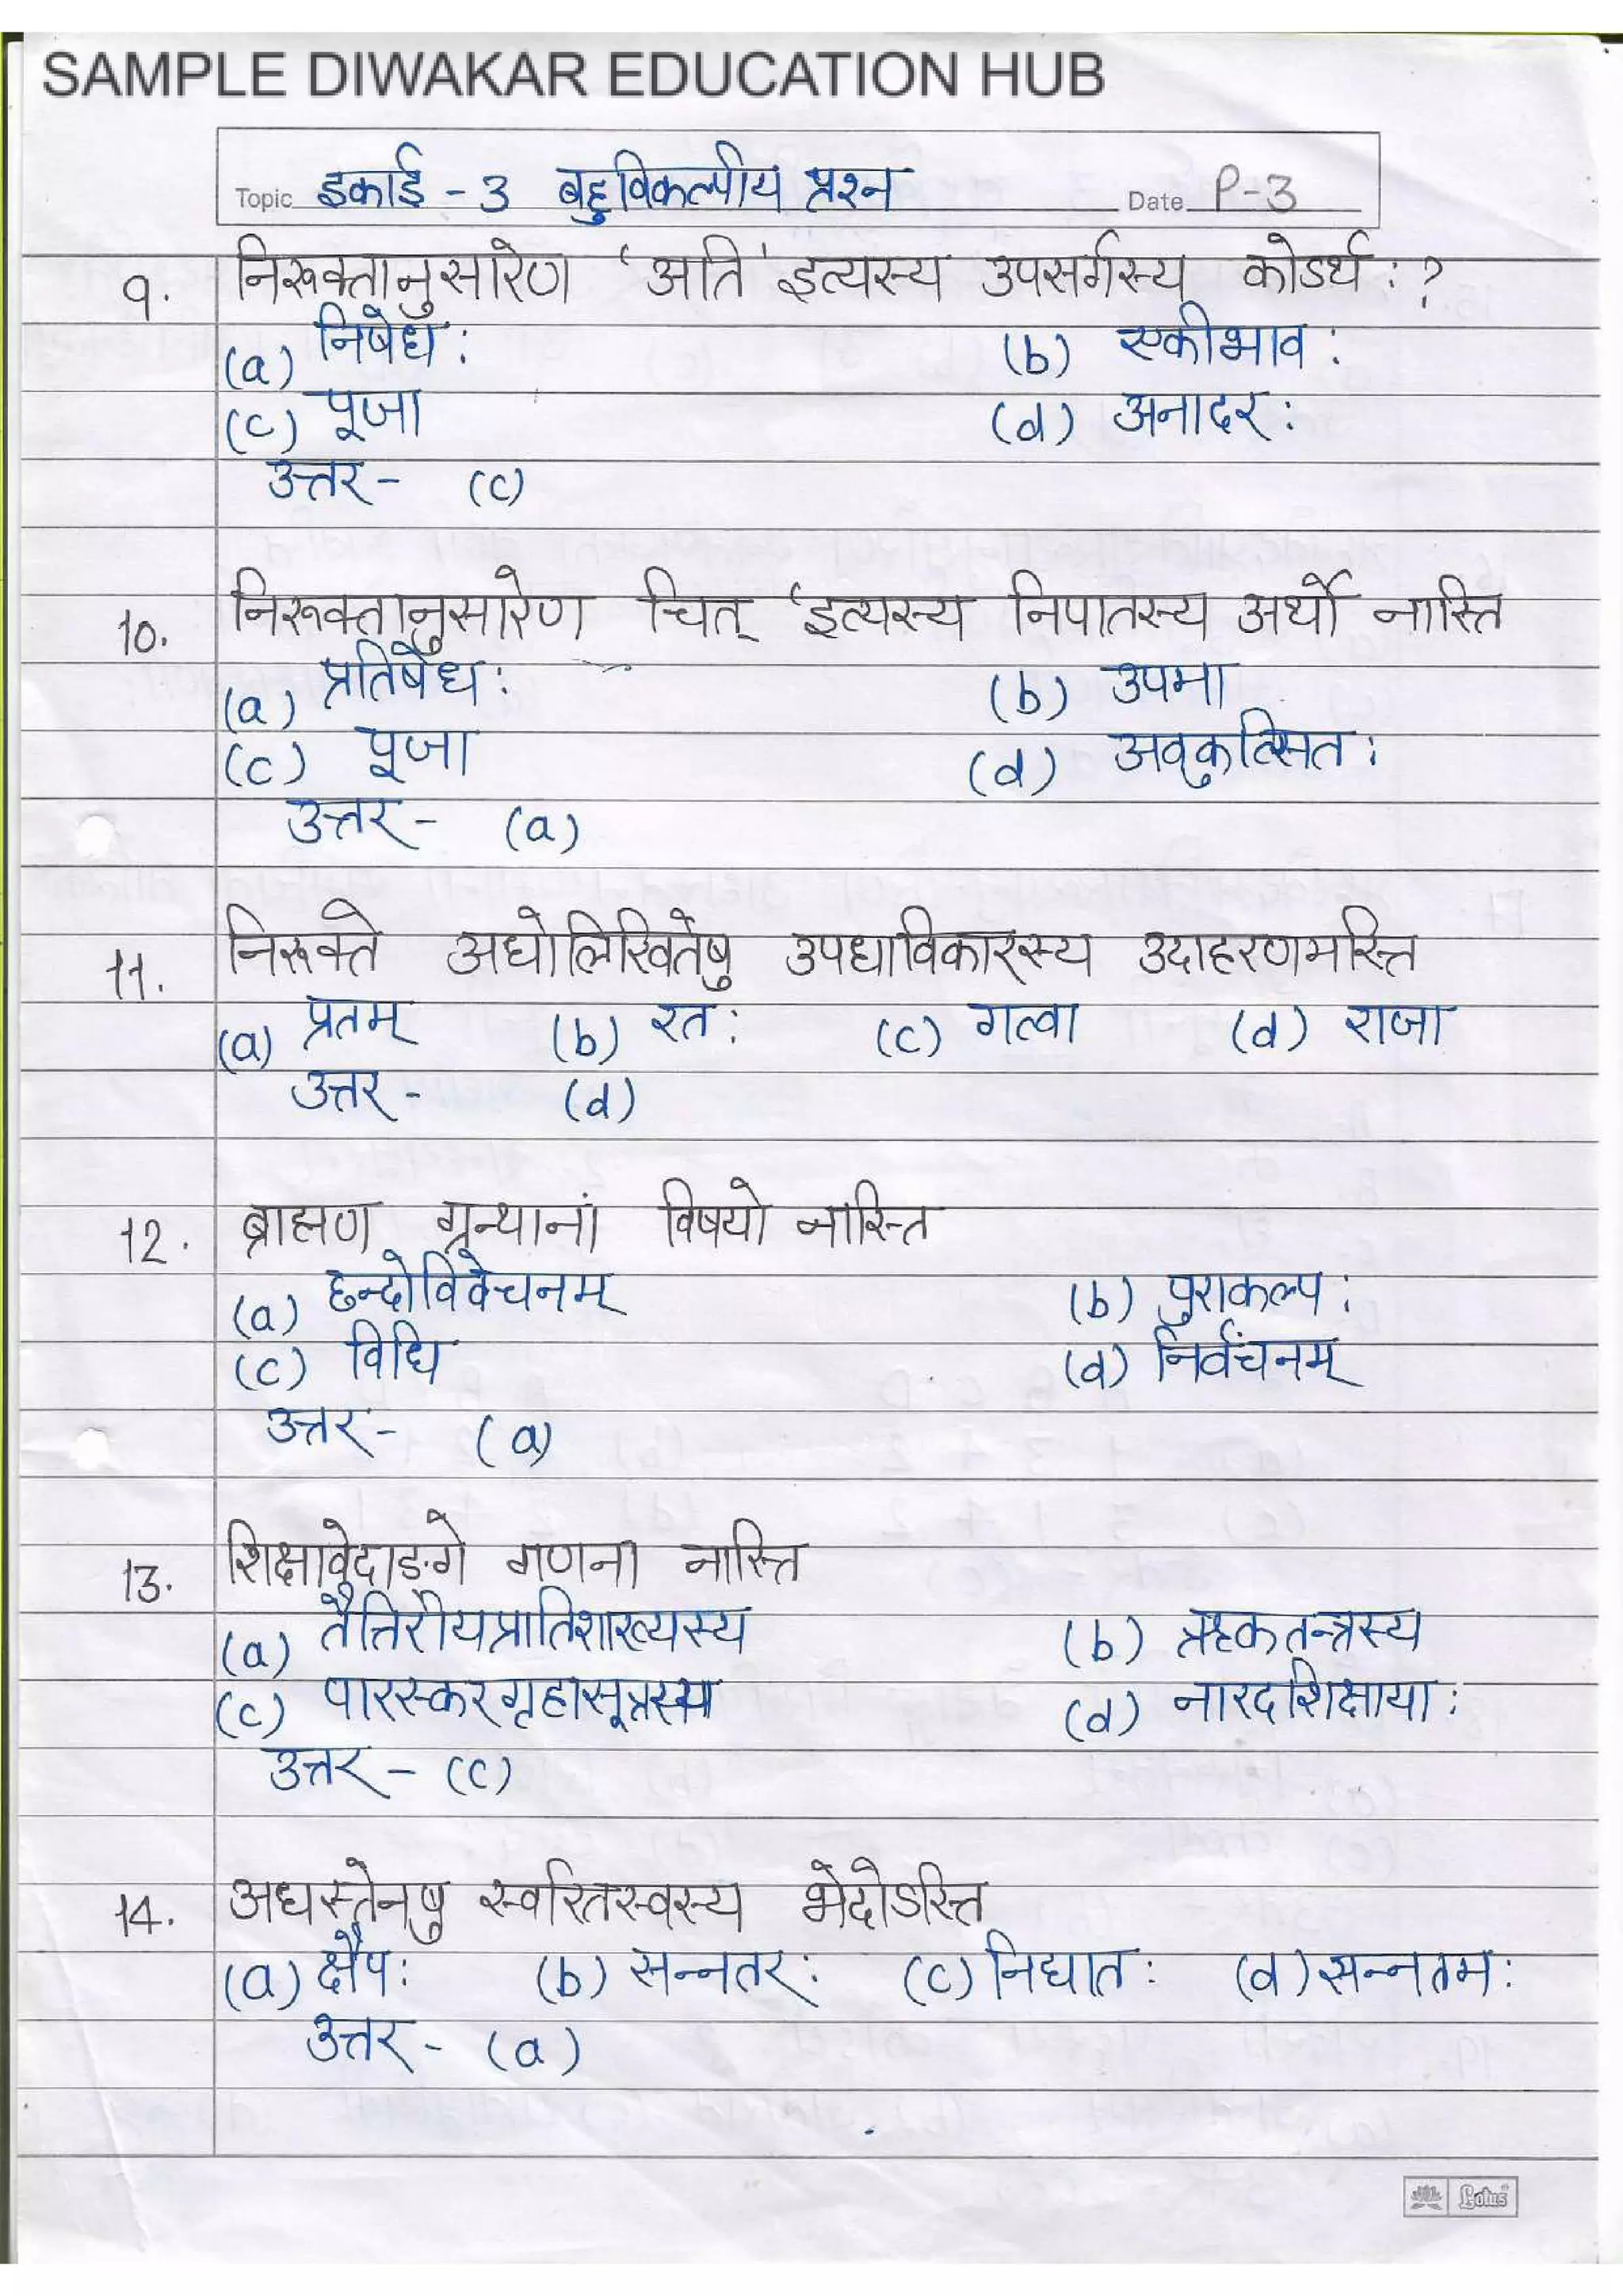 SAMPLE DIWAKAR EDUCATION HUB
Topic इकाई - 3 बहुविकल्पीय प्रश्न Date P-3
9. निरूक्तानुसारेण 'अति' इत्यस्य उपसर्गस्य कोऽर्थ: ?
(a) निषेध: (b) एकीभाव:
(c) पूजा (d) अनादर:
उत्तर- (c)
10. निरूक्तानुसारेण चित् 'इत्यस्य निपातस्य अर्थो नास्ति
(a) प्रतिषेध: (b) उपमा
(c) पूजा (d) अवकुत्सित:
उत्तर- (a)
11. निरूक्ते अधोलिखितेषु उपधाविकारस्य उदाहरणमस्ति
(a) प्रतम् (b) रत: (c) गत्वा (d) राजा
उत्तर- (d)
12. ब्राह्मण ग्रन्थानां विषयो नास्ति
(a) छन्दोविवेचनम् (b) पुराकल्प:
(c) विधि (d) निर्वचनम्
उत्तर- (a)
13. शिक्षावेदाङगे गणना नास्ति
(a) तैत्तिरीयप्रातिशाख्यस्य (b) ऋकतन्त्रस्य
(c) पारस्करगृह्यसूत्रस्य (d) नारदशिक्षाया:
उत्तर- (c)
14. अधस्तेनषु स्वरितस्वस्य भेदोऽस्ति
(a) क्षैप: (b) सन्नतर: (c) निघात: (d) सन्नतम:
उत्तर- (a)
Lotus